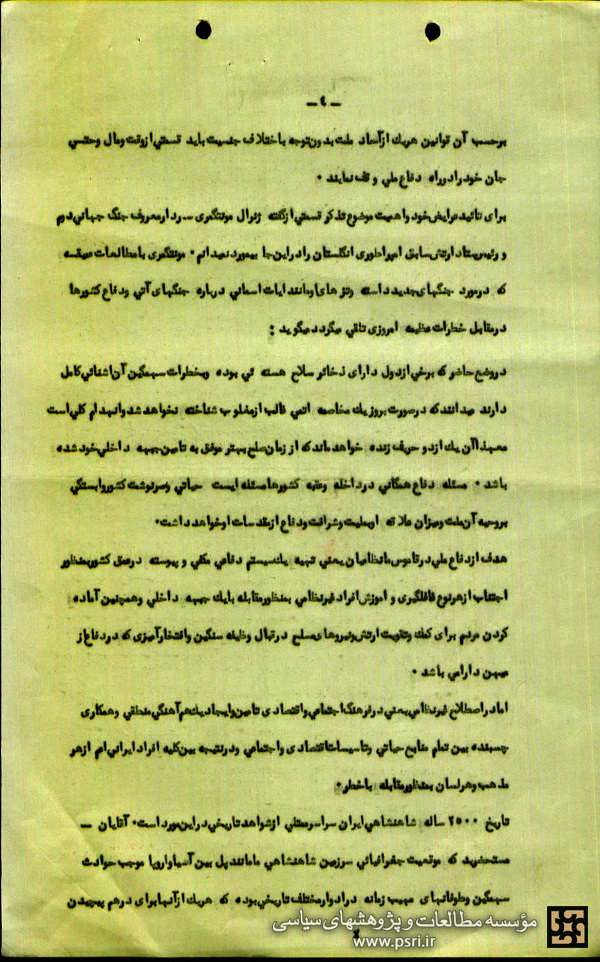 ـ ٤ ـ
برحسب آن قوانین هریك ازآحاد ملت بدون توجه باختلاف جنسیت باید قسمتی ازوقت ومال وحتسی
جان خود رادرراه دفاع ملی و قف نمایند ۰
برای تائید عرایض خود واهمیت موضوع تذکر قسمتی ازگفته ژنرال مونتگمری سـردارمعروف جنگ جهانی دوم
و رئیس ستاد ارتش سابق امپراطوری انگلستان رادراین جا بیمورد نمیدانم ۰ مونتگمری بامطالعات
که درمورد جنگهای جدید داشته وتز های اومانند ایات اسمانی درباره جنگهای آتی ودفاع کشورها
درمقابل خطرات عظیمه امروزی تلقی میگردد میگوید :
دروضع حاضر که برخی ازدول دارای ذخائر سلاح هسته ئی بوده وبخطرات سهمگین آن اشنائی کامل
دارند میدانند که درصورت بروز یك مخاصمه اتمی غالب ازمغلوب شناخته نخواهد شد وانهدام کلی است
معهذا آن یك ازدو حریف زنده خواهد ماند که از زمان صلح بهتر موفق به تامین جبهه داخلی خود شده
باشد ۰ مسئله دفاع همگانی درداخله وعقبه کشورها مسئله ایست حیاتی وسرنوشت کشور وابستگی
بروحیه آن ملت ومیزان علاقه اوبملیت وشرافت ودفاع ازمقدسات اوخواهد داشت۰
هدف ازدفاع ملی درقاموس مانظامیان یعنی تهیه یك سیستم دفاعی مکفی و پیوسته درعمق کشوربمنظور
اجتناب ازهرنوع غافلگیری و اموزش افراد غیرنظامی بمنظورمقابله بایك جبهه داخلی وهمچنین آماده
کردن مردم برای کمك وتقویت ارتش ونیروهای مسلح درقبال وظیفه سنگین وافتخارآمیزی که دردفاع از
میهن دارا می باشد ۰
اما دراصطلاح غیرنظامی یعنی درفرهنگ اجتماعی واقتصادی تامین وایجاد یك هم آهنگی منطقی وهمکاری
چسبنده بین تمام منابع حیاتی وتاسیسات اقتصادی واجتماعی ودرنتیجه بین کلیه افراد ایرانی ام ازهر
مذهب وهرلسان بمنظورمقابله باخطر۰
تاریخ ۲۵۰۰ ساله شاهنشاهی ایران سراسرمملکت ازشواهد تاریخی دراین مورد است۰ آقایان ـ
مستحضرید که موقعیت جغرافیائی سرزمین شاهنشاهی مامانند پل بین آسیا واروپا موجب حوادث
سهمگین وطوفانهای مهیب زمانه درادوارمختلف تاریخی بوده که هریك ازآنها برای درهم پیچیدن
مؤسسه مطالعات و پژوهشهای سیاسی
www.psri.ir